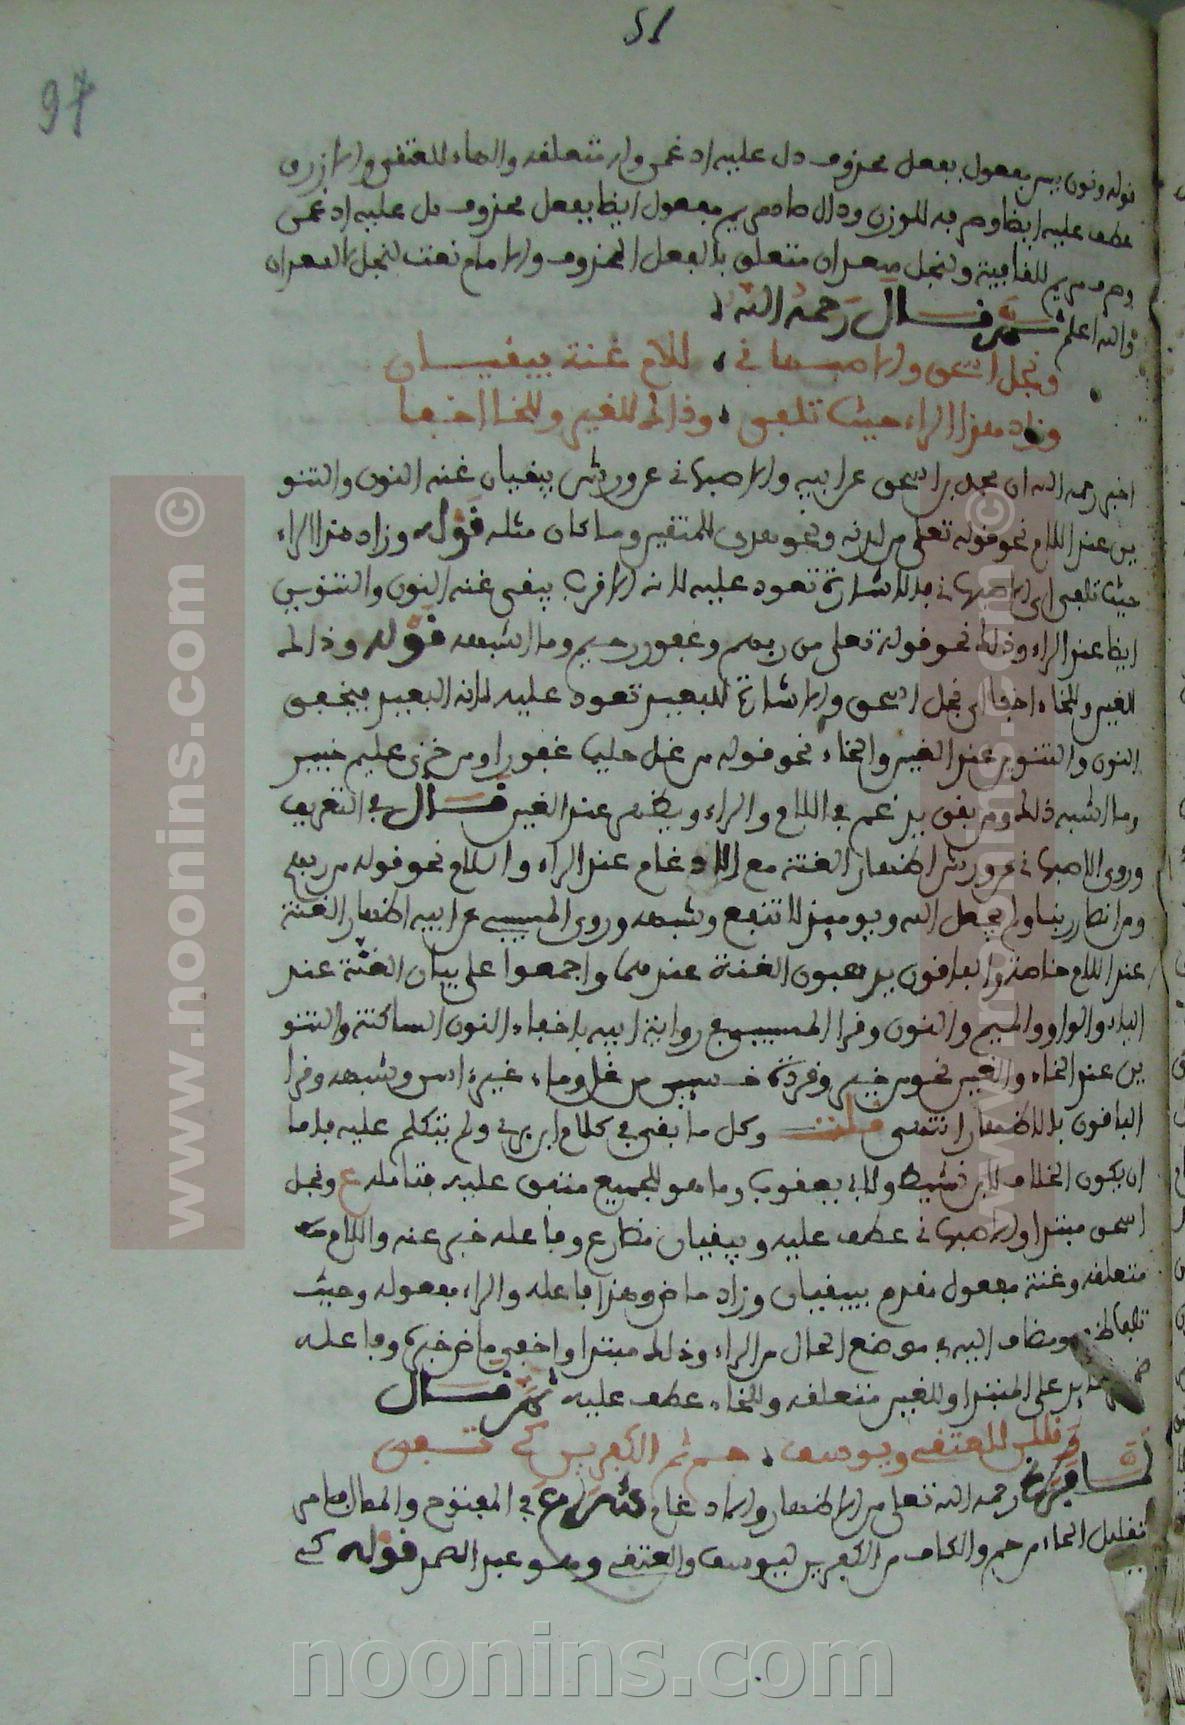 51
97
قوله ونون يس مفعول بفعل محذوف دل عليه ادغمن ولا متعلقه والهاء للعتقي والازرق
عطف عليه ايضا وصرفه للوزن ودال صاد مريم مفعول ايضا بفعل محذوف دل عليه ادغمن
وصرف مريم للقافية ولنجل سعدان متعلق بالفعل المحذوف
والله اعلم ثم قال رحمه الله
ونجل اسحق والاصبهاني للام غنة يبقيان
وزاد هذا الراء حيث تلفى وذا لدى للغين وللخا اخفا
اخبر رحمه الله ان نجل اسحق عن ابيه والاصبهاني عن ورش يبقيان غنه النون والتنو
ين عند اللام نحو قوله تعلى من لدنه ونحو هدى للمتقين وما كان مثله قوله وزاد هذا الراء
حيث تلفى اى الاصبهاني فالاشارة تعود عليه لانه الاقرب يبقى غنه النون والتنوين
ايضا عند الراء وذلك نحو قوله تعلى من ربهم وغفور رحيم وما اشبهه قوله وذا لدى
للغين وللخاء اخفا اى نجل اسحق والاشارة للبعيد تعود عليه لانه البعيد فيخفى
النون والتنوين عند الغين والخاء نحو قوله من غل حليما غفورا ومن خزى عليم خبير
وما اشبه ذلك ومن بقى يدغم في اللام والراء ويظهر عند الغين قال في التعريف
وروى الاصبهاني عن ورش اظهار الغنة مع الادغام عند الراء واللام نحو قوله من ربهم
ومن انصار ربنا ولم يجعل الله ويومئذ لا تنفع وشبهه وروى المسيبي عن ابيه اظهار الغنة
عند اللام خاصة والباقون يذهبون الغنة عندهما واجمعوا على بيان الغنة عند
الياء والواو والميم والنون وقرا المسيبي في رواية ابيه باخفاء النون الساكنة والتنو
ين عند الخاء والغين نحو من خير وقردة خسيين من غل وماء غير اسن وشبهه وقرا
الباقون بالاظهار انتهى قلت وكل ما بقى في كلام ابن بري ولم نتكلم عليه فاما
ان يكون الخلاف لابي نشيط ولابي يعقوب وما هو للجميع متفق عليه فتامله ع ونجل
اسحق مبتدا والاصبهاني عطف عليه ويبقيان مضارع وفاعله خبر عنه واللام
متعلقه وغنة مفعول مقدم بيبقيان وزاد ماض وهذا فاعله والراء مفعوله وحيث
تلفى ومضاف اليه في موضع الحال من الراء وذلك مبتدا واخفى ماض خبره وفاعله
على المبتدا وللغين متعلقه وللخاء عطف عليه ثم قال
وقللن للعتقي ويوسف حم ثم الكفرين كي تفى
لما فرغ رحمه الله تعلى من الاظهار والادغام شرع في المفتوح والممال فامر
بتقليل الحاء من حم والكاف من الكفرين ليوسف والعتقي وهو عبد الصمد قوله كي
www.noonins.com ©
www.noonins.com ©
noonins.com